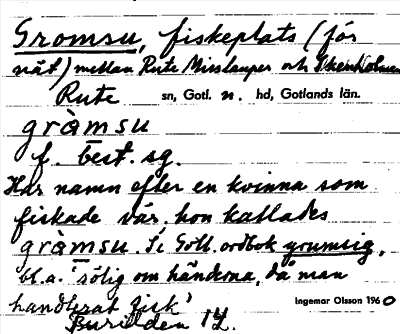 Gromsu, fiskeplats (för
nät) mellan Rute Misslauper och Skenholmen
Rute sn, Gotl. n. hd, Gotlands län.
gràmsu
f. best. sg.
Har namn efter en kvinna som
fiskade där. hon kallades
gràmsu. Se Gotl. ordbok grumsig,
bl.a. 'sölig om händerna, då man
handlerat fisk'
Ingemar Olsson 1960